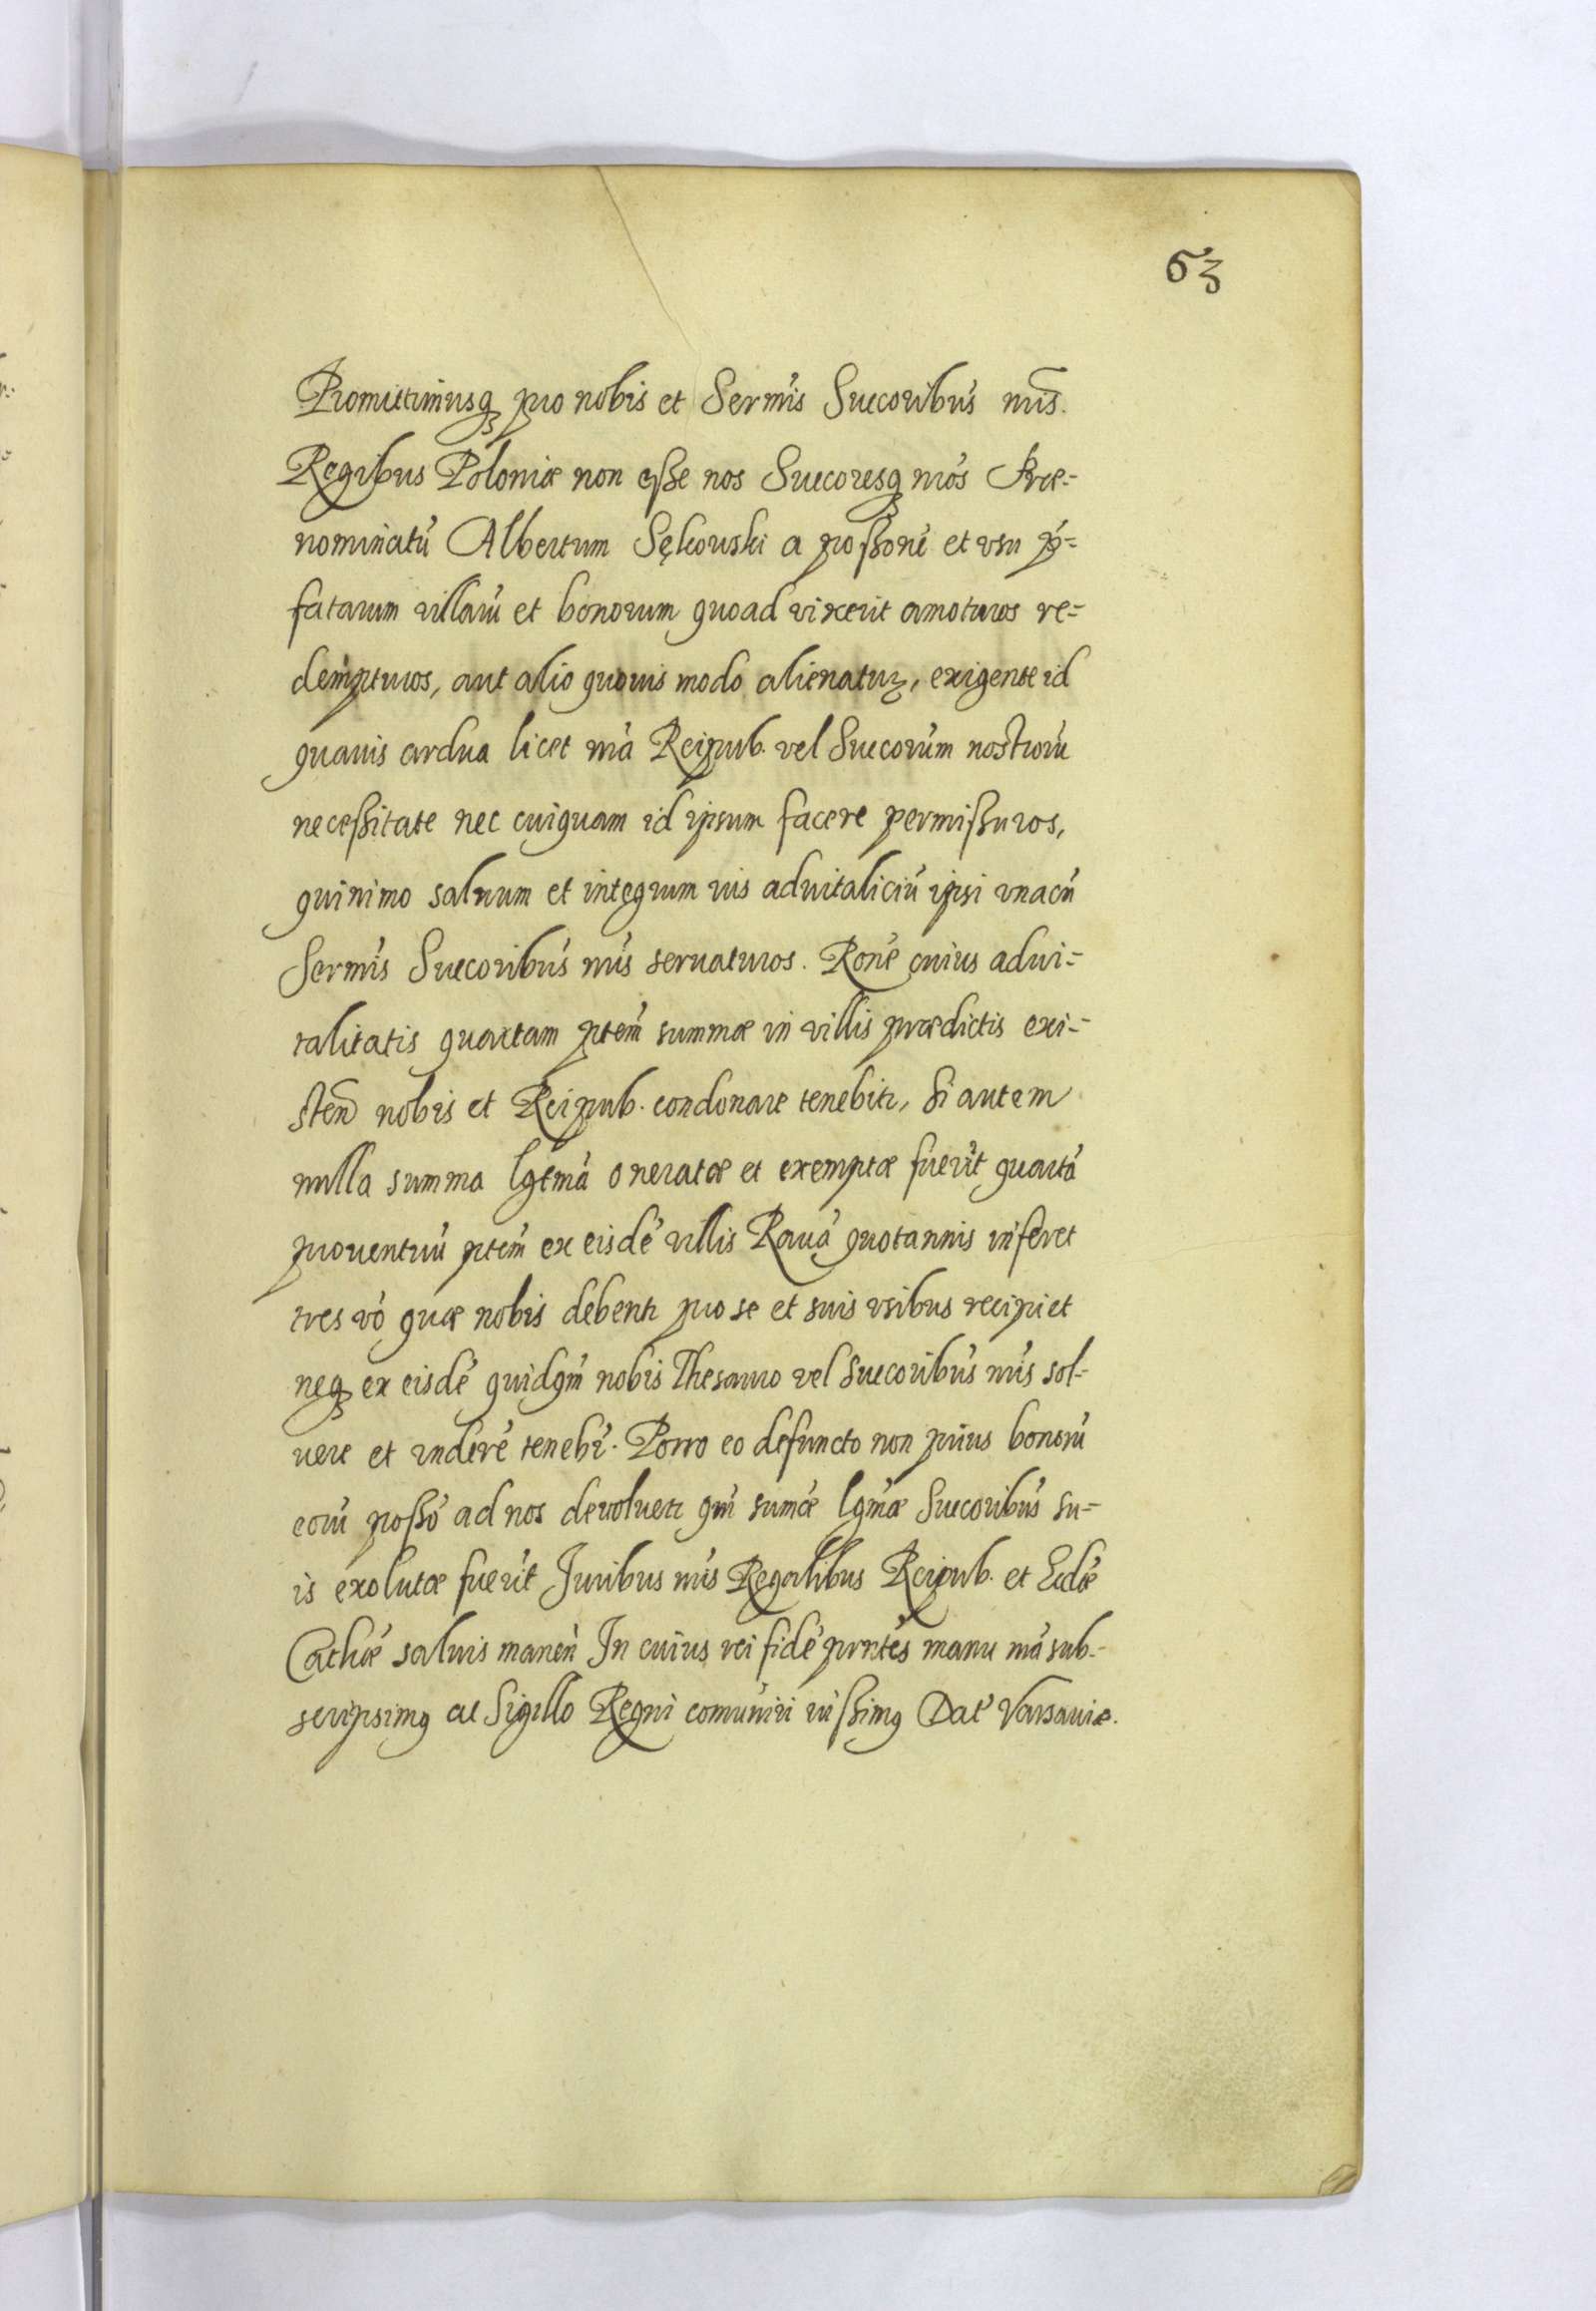 63
Promittimusq₃ pro nobis et Sermi̕s Succoribu̕s nr̃is.
Regibus Poloniæ non eſße nos Succoresq₃ nr̃os Præ-
nominatũ Albertum Sękowski a poſsoné et vsu p̃-
fatarum villarũ et bonorum quoad vixerit amoturos re-
dempturos, aut alio quouis modo alienatur̨, exigente id
quauis ardua licet nr̃a Reipub. vel Succorũm nostrorũ
neceſßitate nec cuiquam id ipsum facere permiſsuros,
quinimo saluum et integrum ius aduitaliciũ ipsi vnacũ
Sermi̕s Succoribu̕s nr̃is seruaturos. Roñe cuius adui-
talitatis quartam ptem̃ summæ in villis prædictis exi-
steñ nobis et Reipub. condonare tenebitr, Si autem
nulla summa lgtma̕ oneratæ et exemptæ fuerĩt quartã
prouentuũ ptem̃ ex eisdẽ villis Rauã quotannis inferet
tres vo̕ quæ nobis debentr pro se et suis vsibus recipiet
neq₃ ex eisdẽ quidqm̃ nobis Thesauro vel Succoribu̕s nr̃is sol-
uere et inderẽ tenebr̃. Porro eo defuncto non prius bonorũ
eorũ poſsõ ad nos devoluetr qm̃ sum̃æ lgm̃æ Succoribu̕s su-
is exolutæ fuerĩt Iuribus nr̃is Regalibus Reipub. et Ecclæ̃
Cathcæ̃ saluis maneñ In cuius rei fidẽ prntẽs manu nr̃a sub-
scripsimq ac Sigillo Regni com̃uniri iuſsimq Dat̃ Varsauiæ.